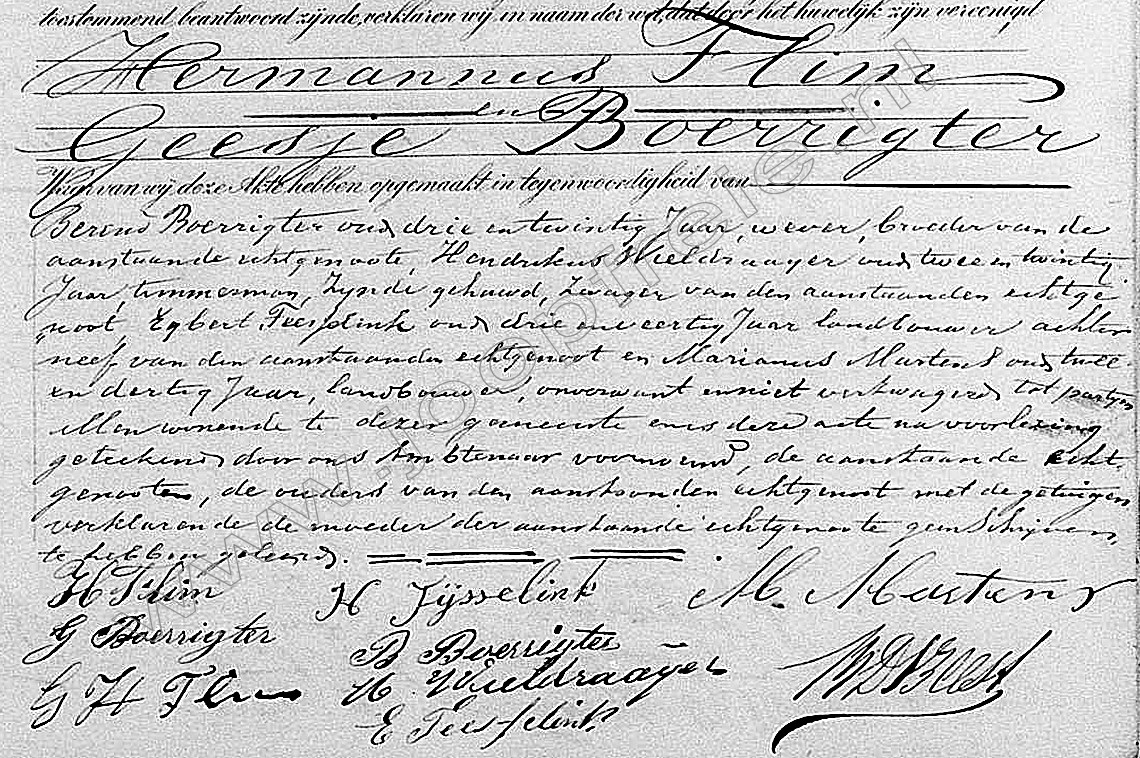 toestemmend beantwoord zijnde, verklaren wij, in naam der wet, dat door het huwelijk zijn vereenigd
Hermannus Flim
en
Geesje Boerrigter
Waarvan wij deze Akte hebben opgemaakt in tegenwoordigheid van
Berend Boerrigter oud drie en twintig Jaar, wever, broeder van de
aanstaande echtgenoote, Hendrikus Wieldraaijer oud twee en twintig
Jaar, timmerman, Zynde gehuwd, Zwager van den aanstaanden echtge
noot, Egbert Teesselink oud drie en veertig Jaar landbouwer achter
neef van den aanstaanden echtgenoot en Marianus Martens oud twee
en dertig Jaar, landbouwer, onverwant en niet verzwagerd tot partyen
Allen wonende te dezer gemeente en is deze acte na voorlezing
geteekend door ons Ambtenaar voornoemd, de aanstaande echt,
genooten, de ouders van den aanstaanden echtgenoot met de getuigen
verklarende de moeder der aanstaande echtgenoote geen Schrijven
te hebben geleerd.
H Flim H Zijsselink M. Martens
G Boerrigter B Boerrigter
G H Flim H. Wieldraayer
E Teesselink
www.oopfrere.nl